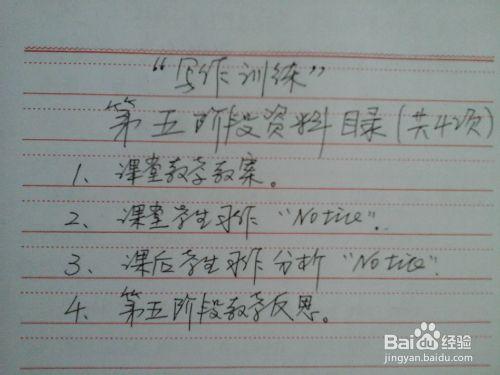 “写作训练”
第五阶段资料目录(共4项)
1、课堂教学教案。
2、课堂学生习作“Notice”.
3、课后学生习作分析“Notice”.
4、第五阶段教学反思。
Baidu经验
jingyan.baidu.com